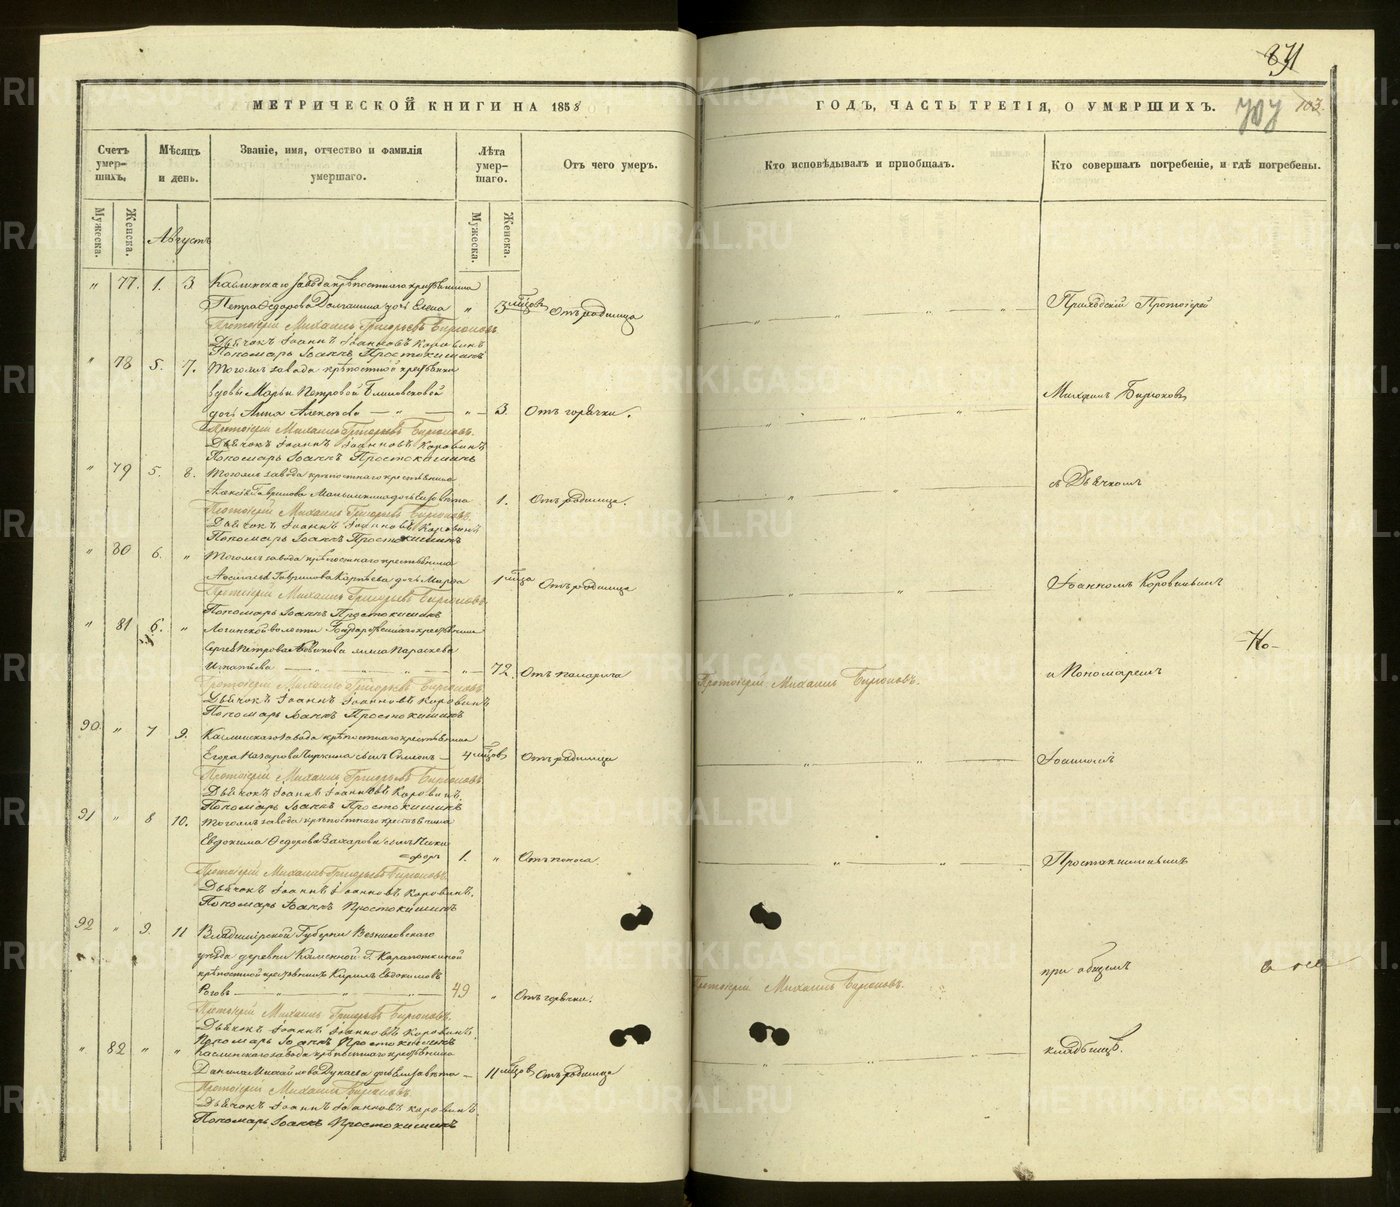 871
МЕТРИЧЕСКОЙ КНИГИ НА 1858
ГОДЪ, ЧАСТЬ ТРЕТІЯ, О УМЕРШИХЪ.
707 103.
Счетъ умер-шихъ.
Мѣсяцъ и день.
Званіе, имя, отчество и фамилія умершаго.
Лѣта умер-шаго.
Отъ чего умеръ.
Кто исповѣдывалъ и приобщалъ.
Кто совершалъ погребеніе, и гдѣ погребены.
Мужеска.
Женска.
Августъ
Мужеска.
Женска.
" 77. 1. 3. Каслинскаго завода крѣпостнаго крестьянина
Петра Ѳедорова Долганина дочь Елена " 3 мѣсцов Отъ родимца
Протоіерей Михаилъ Григорьевъ Бирюковъ.
Дьячокъ Іоаннъ Іоанновъ Коровинъ
Пономарь Іоаннъ Простокишинъ
Приходскій Протоіерей
" 78 5. 7. Тогожъ завода крѣпостной крестьянки
вдовы Марьи Петровой
дочь Анна Алексѣева — " — " — 3. Отъ горячки.
Протоіерей Михаилъ Григорьевъ Бирюковъ.
Дьячокъ Іоаннъ Іоанновъ Коровинъ
Пономарь Іоаннъ Простокишинъ
Михаилъ Бирюковъ
" 79 5. 8. Тогожъ завода крѣпостнаго крестьянина
Гаврилова дочь Елизавета 1. Отъ родимца.
Протоіерей Михаилъ Григорьевъ Бирюковъ.
Дьячокъ Іоаннъ Іоанновъ Коровинъ
Пономарь Іоаннъ Простокишинъ
съ Дьячкомъ
" 80 6. " Тогожъ завода крѣпостнаго крестьянина
Гаврилова дочь Марфа 1 мѣсца Отъ родимца
Протоіерей Михаилъ Григорьевъ Бирюковъ.
Пономарь Іоаннъ Простокишинъ
Іоанномъ Коровинымъ
" 81 6. " волости крестьянина
Сергея Петрова жена Параскева
Игнатьева — " — " — 72. Отъ паралича
Протоіерей Михаилъ Григорьевъ Бирюковъ.
Дьячокъ Іоаннъ Іоанновъ Коровинъ
Пономарь Іоаннъ Простокишинъ
Протоіерей Михаилъ Бирюковъ.
и Пономаремъ
90. " 7 9. Каслинскаго завода крѣпостнаго крестьянина
Егора Назарова сынъ — 4 мѣсцов Отъ родимца
Протоіерей Михаилъ Григорьевъ Бирюковъ
Дьячокъ Іоаннъ Іоанновъ Коровинъ.
Пономарь Іоаннъ Простокишинъ
Іоанномъ
91 " 8 10. Тогожъ завода крѣпостнаго крестьянина
Евдокима Ѳедорова Захарова сынъ Ники
форъ 1. " Отъ поноса.
Протоіерей Михаилъ Григорьевъ Бирюковъ.
Дьячокъ Іоаннъ Іоанновъ Коровинъ.
Пономарь Іоаннъ Простокишинъ
Простокишинымъ
92 " 9. 11 Владимірской Губерніи Везниковскаго
уѣзда деревни Каменной Г.
крѣпостной крестьянинъ Кирилъ Евдокимовъ
Роговъ — " — " — 49 " Отъ горячки.
Протоіерей Михаилъ Григорьевъ Бирюковъ.
Дьячокъ Іоаннъ Іоанновъ Коровинъ.
Пономарь Іоаннъ Простокишинъ
Протоіерей Михаилъ Бирюковъ.
при общемъ
" 82 " " Каслинскаго завода крѣпостнаго крестьянина
Данилы Михайлова Дунаева дочь Елизавета — 11 мѣсцов Отъ родимца
Протоіерей Михаилъ Бирюковъ.
Дьячокъ Іоаннъ Іоанновъ Коровинъ.
Пономарь Іоаннъ Простокишинъ
кладбищѣ.
METRIKI.GASO-URAL.RU